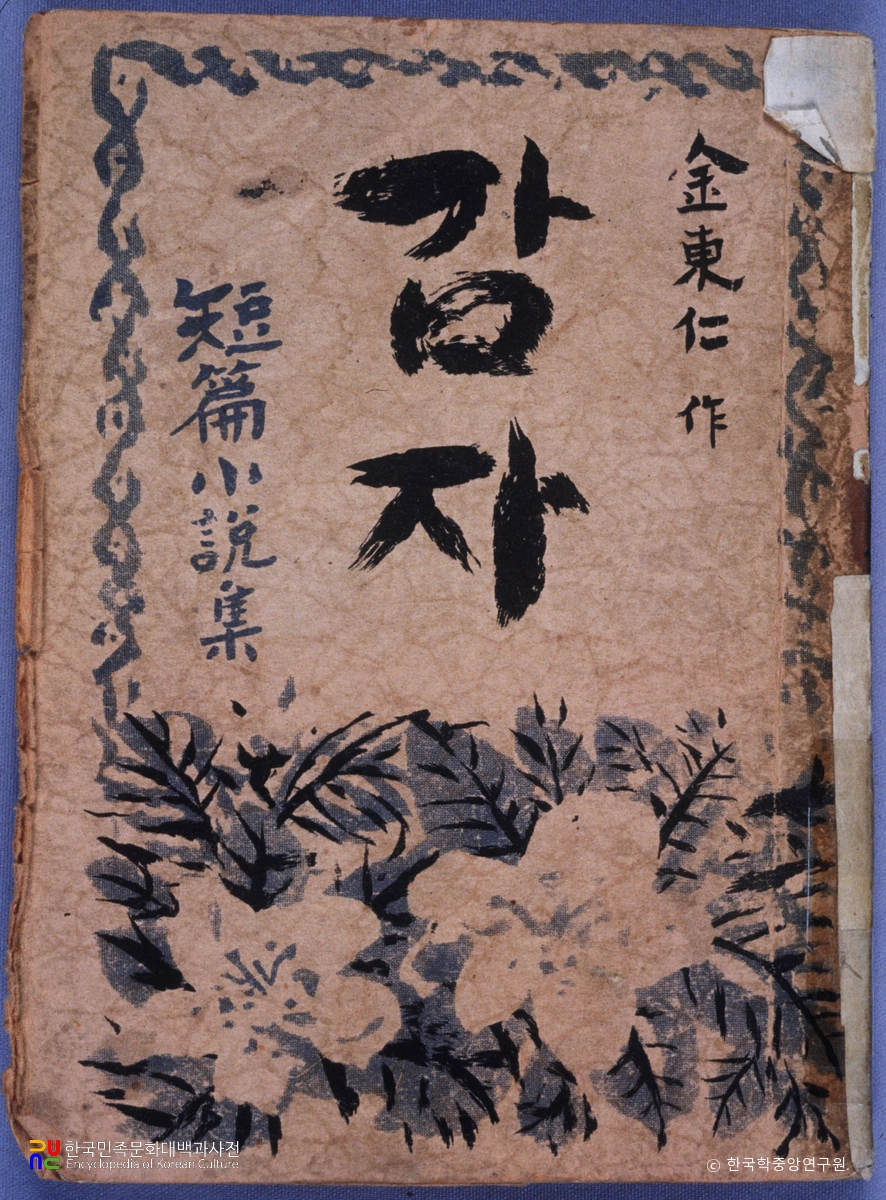 金東仁 作
감자
短篇小說集
한국민족문화대백과사전
Encyclopedia of Korean Culture
© 한국학중앙연구원